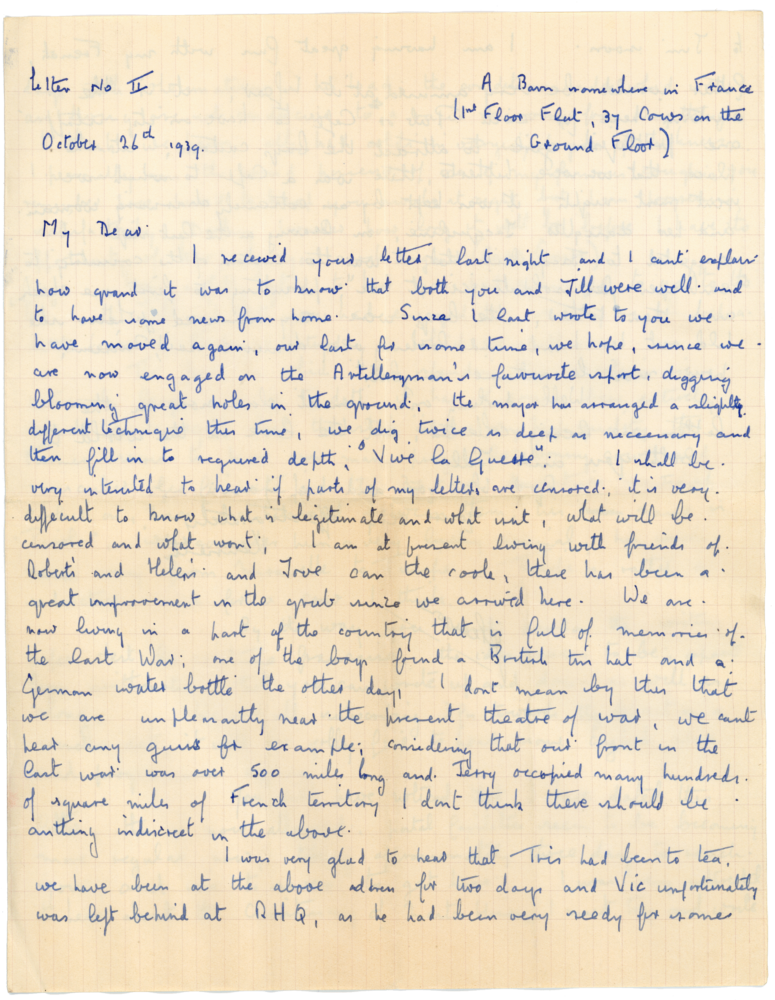 Letter No II
A Barn somewhere in France
(1st Floor Flat, 37 Cows on the
Ground Floor)
October 26th 1939.
My Dear
I received your letter last night and I can't explain
how grand it was to know that both you and Jill were well and
to have some news from home. Since I last wrote to you we
have moved again, our last for some time, we hope, since we
are now engaged on the Artilleryman's favourite sport, digging
blooming great holes in the ground. The major has arranged a slightly
different technique this time, we dig twice as deep as necessary and
then fill in to required depth, "Vive la Guerre". I shall be
very interested to hear if parts of my letters are censored, it is very
difficult to know what is legitimate and what isnt, what will be
censored and what wont; I am at present living with friends of
Robert's and Helen's and Jove can the cook, there has been a
great improvement in the grub since we arrived here. We are
now living in a part of the country that is full of memories of
the last War; one of the boys found a British tin hat and a
German water bottle the other day, I dont mean by this that
we are unpleasantly near the present theatre of war, we cant
hear any guns for example; considering that our front in the
last war was over 500 miles long and Jerry occupied many hundreds
of square miles of French territory I dont think there should be
anything indiscreet in the above.
I was very glad to hear that Tris had been to tea,
we have been at the above address for two days and Vic unfortunately
was left behind at RHQ, as he had been very seedy for some